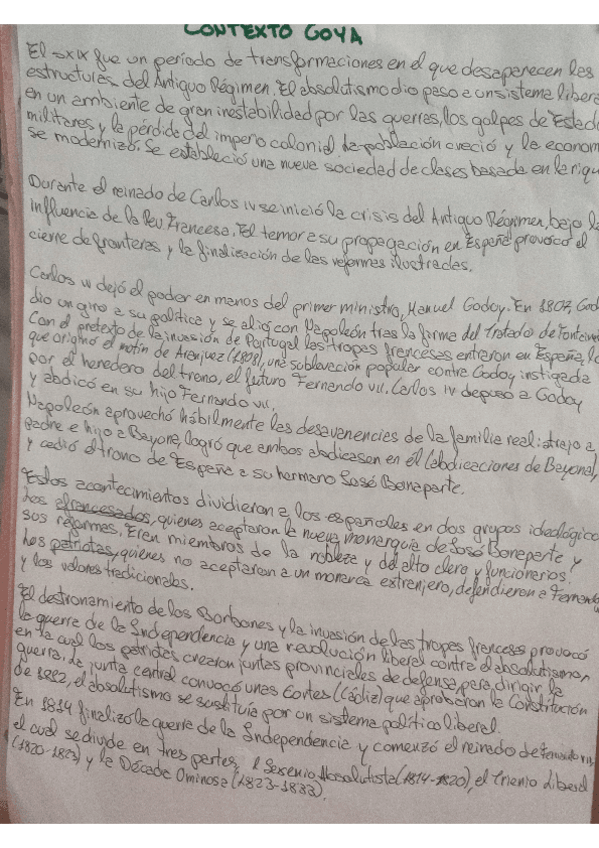 CONTEXTO GOYA
El sXIX fue un período de transformaciones en el que desaparecen las
estructuras del Antiguo Régimen. El absolutismo dio paso a un sistema libera
en un ambiente de gran inestabilidad por las guerras, los golpes de Estado
militares y la pérdida del imperio colonial. La población creció y la econom
se modernizó. Se estableció una nueva sociedad de clases basada en la riqu
Durante el reinado de Carlos IV se inició la crisis del Antiguo Régimen, bajo la
influencia de la Rev. Francesa. El temor a su propagación en España provocó el
cierre de fronteras y la finalización de las reformas ilustradas.
Carlos IV dejó el poder en manos del primer ministro, Manuel Godoy. En 1807, God
dio un giro a su política y se alió con Napoleón tras la firma del Tratado de Fontain
Con el pretexto de la invasión de Portugal las tropas francesas entraron en España, lo
que originó el motín de Aranjuez (1808), una sublevación popular contra Godoy instigada
por el heredero del trono, el futuro Fernando VII. Carlos IV depuso a Godoy
y abdicó en su hijo Fernando VII.
Napoleón aprovechó hábilmente las desavenencias de la familia real: atrajo a
padre e hijo a Bayona, logró que ambos abdicasen en él (abdicaciones de Bayona),
y cedió el trono de España a su hermano José Bonaparte.
Estos acontecimientos dividieron a los españoles en dos grupos ideológico
Los afrancesados, quienes aceptaron la nueva monarquía de José Bonaparte y
sus reformas. Eren miembros de la nobleza y del alto clero y funcionarios.
Los patriotas, quienes no aceptaron a un monarca extranjero, defendieron a Fernando
y los valores tradicionales.
El destronamiento de los Borbones y la invasión de las tropas francesas provocó
la guerra de la Independencia y una revolución liberal contra el absolutismo,
en la cual los patriotas crearon juntas provinciales de defensa, para dirigir la
guerra. La junta central convocó unas Cortes (Cádiz) que aprobaron la Constitución
de 1812, el absolutismo se sustituía por un sistema político liberal.
En 1814 finalizo la guerra de la Independencia y comenzó el reinado de Fernando VII,
el cual se divide en tres partes, el Sexenio Absolutista (1814-1820), el Trienio Liberal
(1820-1823) y la Década Ominosa (1823-1833).